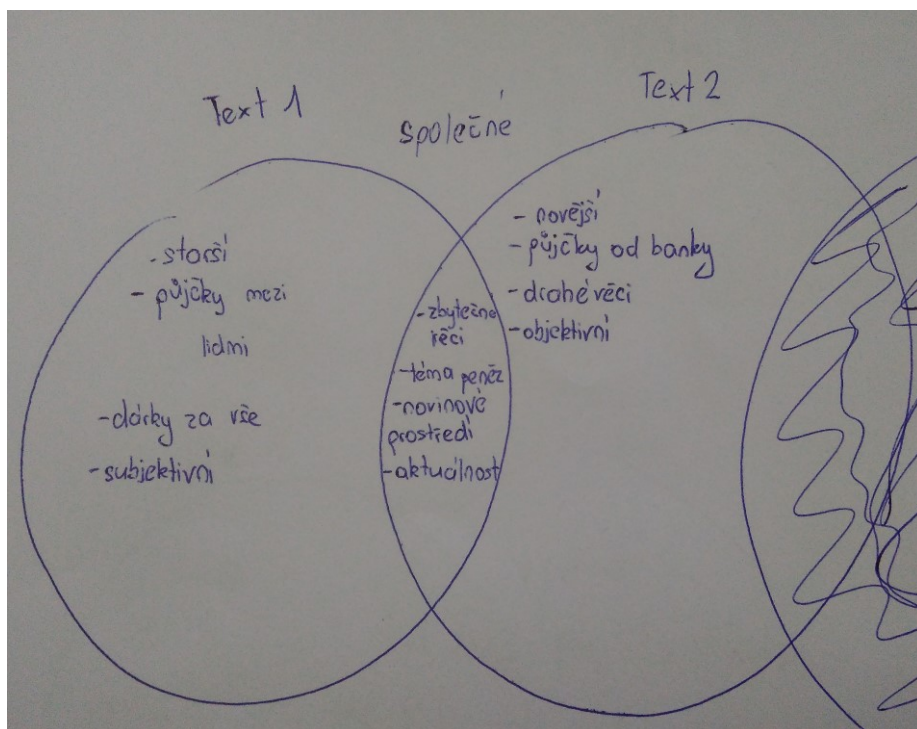 Text 1
- starší
- půjčky mezi
lidmi
- dárky za vše
- subjektivní
společné
- zbytečné
věci
- téma peněz
- novinové
prostředí
- aktuálnost
Text 2
- novější
- půjčky od banky
- drahé věci
- objektivní